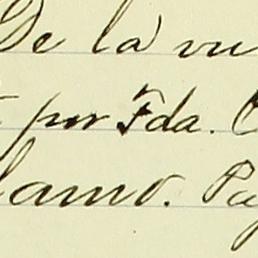 De la vu
por Fda. C
lamo. Pa